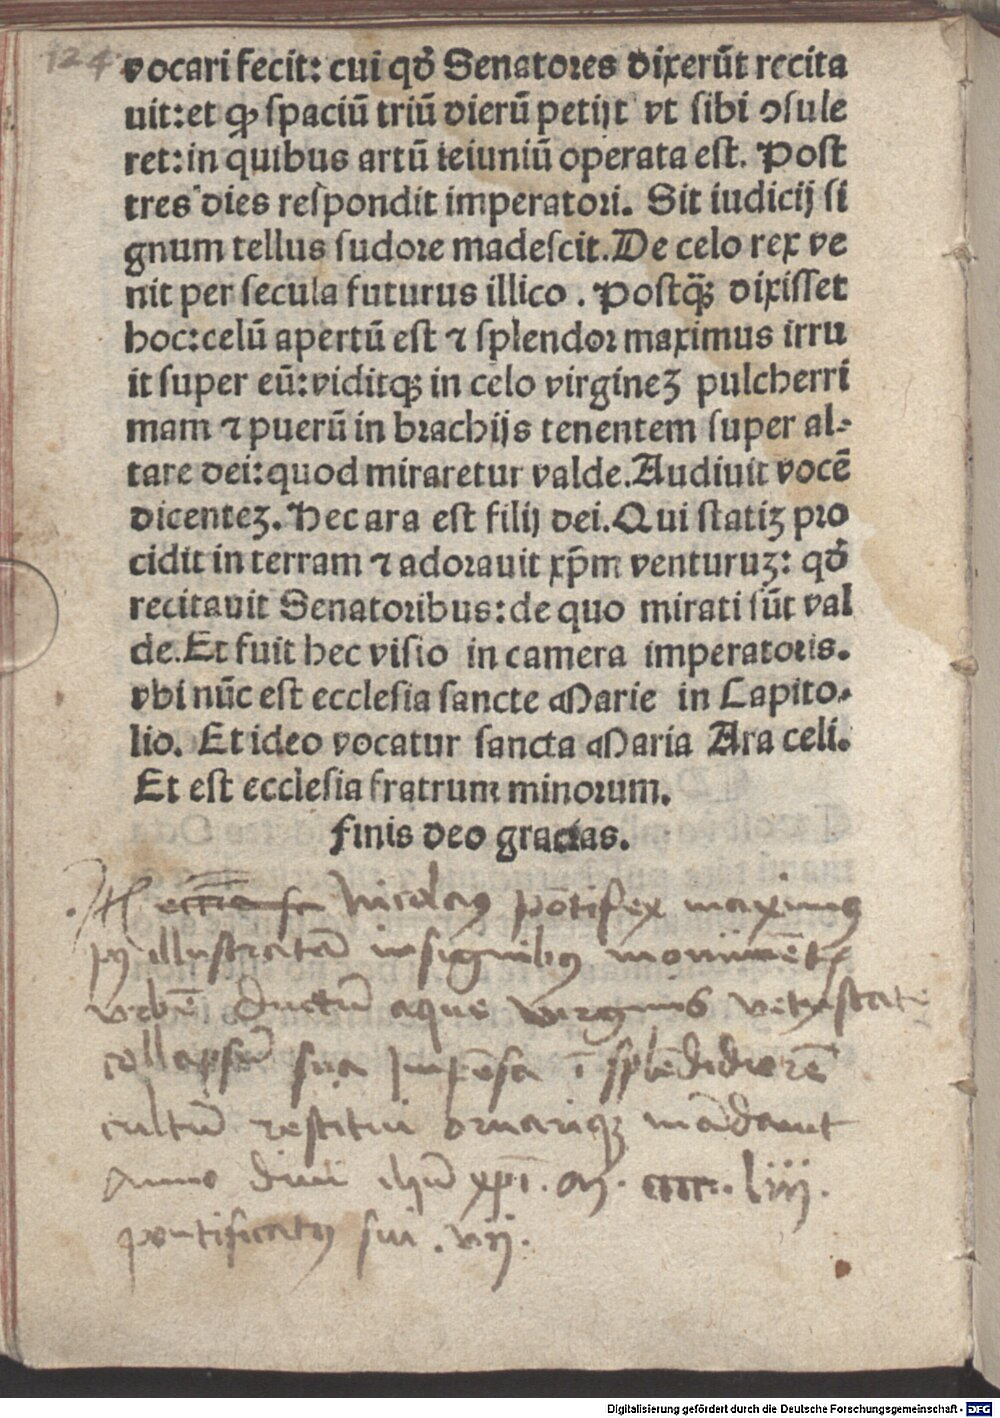 124
vocari fecit: cui qđ Senatores dixerūt recita
uit:et ꝙ spaciū triū dierū petijt vt sibi ↄsule
ret:in quibus artū ieiuniū operata est. Post
tres dies respondit imperatori. Sit iudicij si
gnum tellus sudore madescit. De celo rex ve
nit per secula futurus illico. Postq̄ꝫ dixisset
hoc:celū apertū est ⁊ splendor maximus irru
it super eū:viditqꝫ in celo virgineꝫ pulcherri
mam ⁊ puerū in brachijs tenentem super al-
tare dei:quod miraretur valde. Audiuit vocē
dicenteꝫ. Hec ara est filij dei. Qui statiꝫ pro
cidit in terram ⁊ adorauit xp̄m venturuꝫ: qđ
recitauit Senatoribus:de quo mirati sūt val
de. Et fuit hec visio in camera imperatoris.
vbi nūc est ecclesia sancte Marie in Capito-
lio. Et ideo vocatur sancta Maria Ara celi.
Et est ecclesia fratrum minorum.
Finis deo gracias.
Nicolaꝰ pōtifex maximꝰ
illustratā insignibꝰ
vrbē ductū aque virginis vetustate
collapsū sua Impēsa ī splēdidiorē
cultū restitui ornariqꝫ mādauit
Anno dn̄i ihū xp̄i . M . cccc . liij .
pontificatꝰ sui . vij .
Digitalisierung gefördert durch die Deutsche Forschungsgemeinschaft - DFG